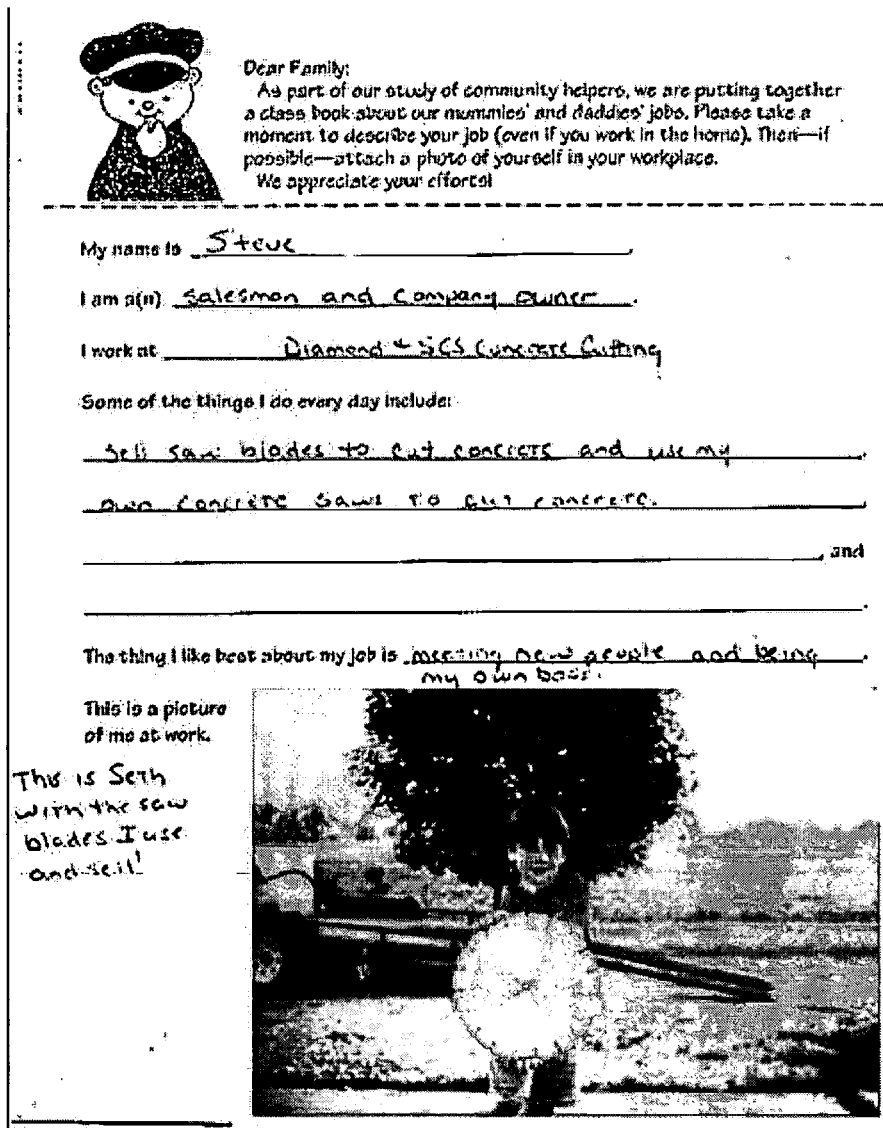 Dear Family:
As part of our study of community helpers, we are putting together
a class book about our mommies' and daddies' jobs. Please take a
moment to describe your job (even if you work in the home). Then—if
possible—attach a photo of yourself in your workplace.
We appreciate your efforts!
My name is Steve.
I am a(n) salesman and company owner.
I work at Diamond + SCS Concrete Cutting
Some of the things I do every day include:
Sell saw blades to cut concrete and use my,
own concrete saws to cut concrete.
, and
.
The thing I like best about my job is meeting new people and being.
my own boss.
This is a picture
of me at work.
This is Seth
with the saw
blades I use
and sell!